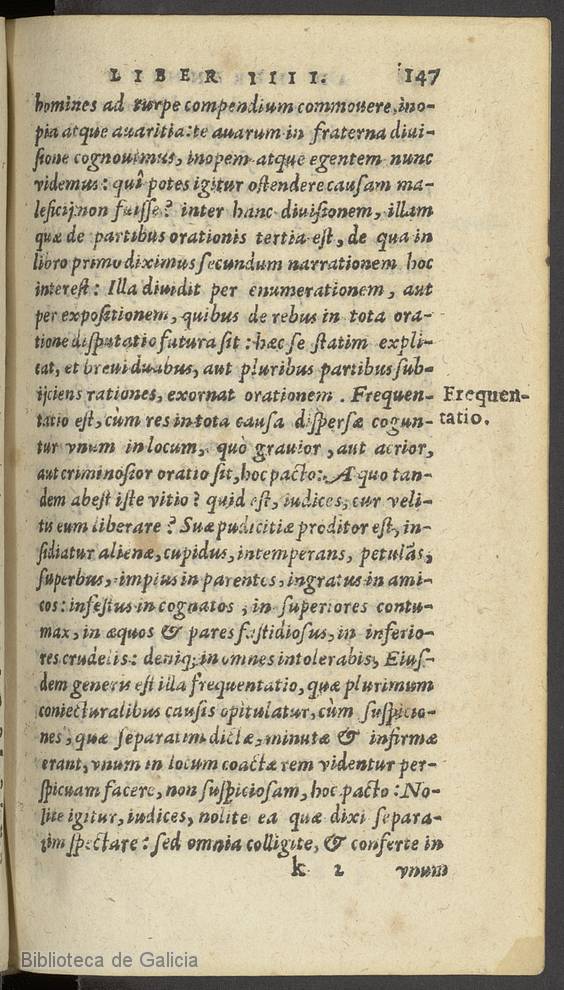 LIBER IIII. 147
homines ad turpe compendium commouere, ino-
pia atque auaritia: te auarum in fraterna diui-
sione cognouimus, inopem atque egentem nunc
videmus: quî potes igitur ostendere causam ma-
leficij non fuisse? inter hanc diuisionem, illam
quæ de partibus orationis tertia est, de qua in
libro primo diximus secundum narrationem hoc
interest: Illa diuidit per enumerationem, aut
per expositionem, quibus de rebus in tota ora-
tione disputatio futura sit: hæc se statim expli-
cat, et breui duabus, aut pluribus partibus sub-
ijciens rationes, exornat orationem. Frequen-
Frequen-
tatio.
tatio est, cùm res in tota causa dispersæ cogun-
tur vnum in locum, quò grauior, aut acrior,
aut criminosior oratio sit, hoc pacto: A quo tan-
dem abest iste vitio? quid est, iudices, cur veli-
tu eum liberare? Suæ pudicitiæ proditor est, in-
sidiatur alienæ, cupidus, intemperans, petulãs,
superbus, impius in parentes, ingratus in ami-
cos: infestus in cognatos, in superiores contu-
max, in æquos & pares fastidiosus, in inferio-
res crudelis: deniq; in omnes intolerabis, Eius-
dem generis est illa frequentatio, quæ plurimum
coniecturalibus causis opitulatur, cùm suspicio-
nes, quæ separatim dictæ, minutæ & infirmæ
erant, vnum in locum coactæ rem videntur per-
spicuam facere, non suspiciosam, hoc pacto: No-
lite igitur, iudices, nolite ea quæ dixi separa-
tim spectare: sed omnia colligite, & conferte in
k 2 vnum
Biblioteca de Galicia